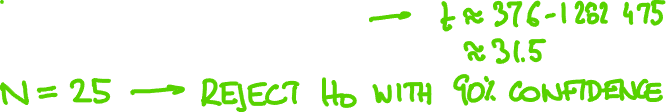 → t ≈ 376-1282 475
≈ 31.5
N = 25 → REJECT H₀ WITH 90% CONFIDENCE